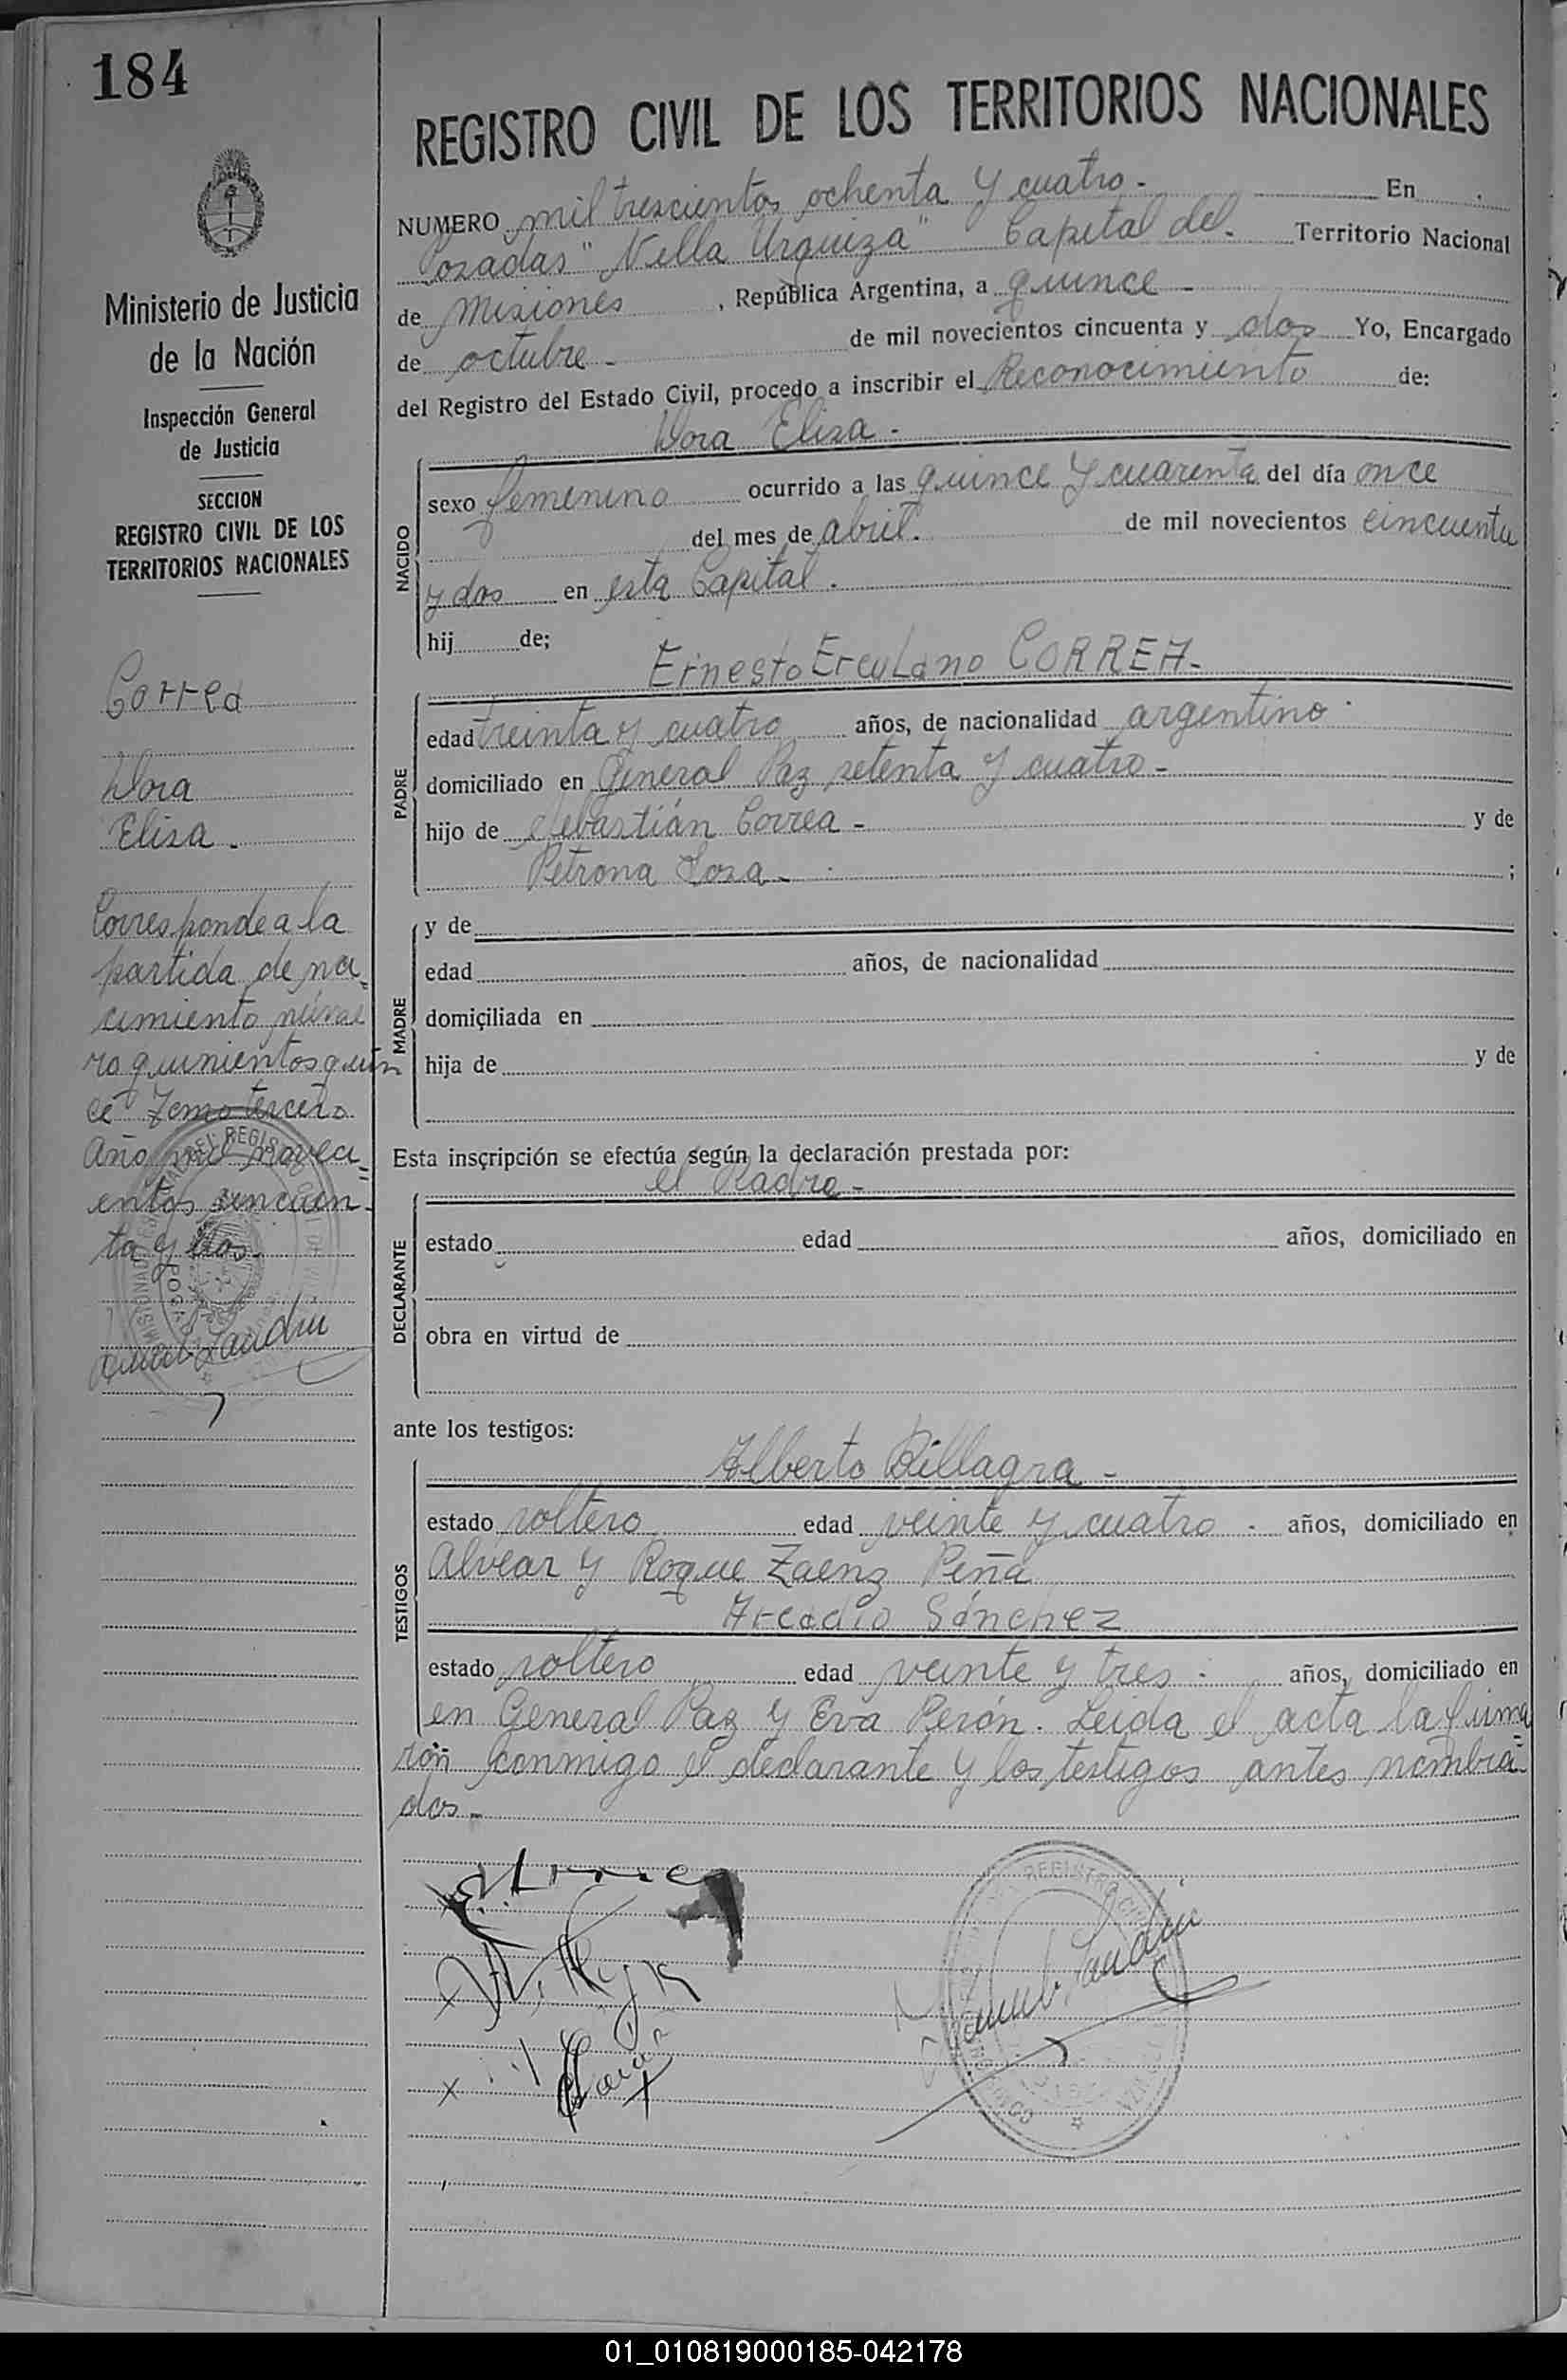 184
REGISTRO CIVIL DE LOS TERRITORIOS NACIONALES
NUMERO mil trescientos ochenta y cuatro - En
Posadas "Villa Urquiza" Capital del Territorio Nacional
de Misiones, República Argentina, a quince -
de octubre - de mil novecientos cincuenta y dos Yo, Encargado
del Registro del Estado Civil, procedo a inscribir el Reconocimiento de:
Dora Elisa -
NACIDO
sexo femenino ocurrido a las quince y cuarenta del día once
del mes de abril. de mil novecientos cincuenta
y dos en esta Capital.
hij de;
Ernesto Erculano CORREA-
PADRE
edad treinta y cuatro años, de nacionalidad argentino
domiciliado en General Paz setenta y cuatro -
hijo de Sebastián Correa - y de
Petrona Sosa - ;
MADRE
y de
edad años, de nacionalidad
domiçiliada en
hija de y de
Esta insçripción se efectúa según la declaración prestada por:
el Padre -
DECLARANTE
estado edad años, domiciliado en
obra en virtud de
ante los testigos:
Alberto Billagra -
TESTIGOS
estado soltero edad veinte y cuatro - años, domiciliado en
Alvear y Roque Zaenz Peña
Arcadio Sánchez
estado soltero edad veinte y tres - años, domiciliado en
en General Paz y Eva Perón. Leida el acta la firma=
ron conmigo el declarante y los testigos antes nombra-
dos -
Ministerio de Justicia
de la Nación
Inspección General
de Justicia
SECCION
REGISTRO CIVIL DE LOS
TERRITORIOS NACIONALES
Correa
Dora
Elisa -
Corresponde a la
partida de na=
cimiento núme
ro quinientos quin
ce Tomo tercero
Año mil noveci=
entos cincuen-
ta y dos -
01_010819000185-042178